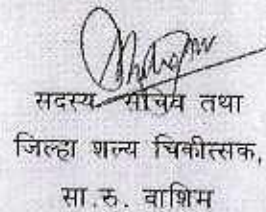 सदस्य सचिव तथा
जिल्हा शल्य चिकीत्सक,
सा.रु. वाशिम